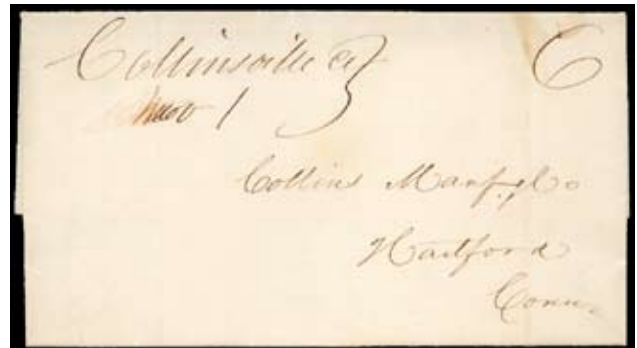 Collinsville Ct 6
Nov 1
Collins Manfg Co
Hartford
Conn